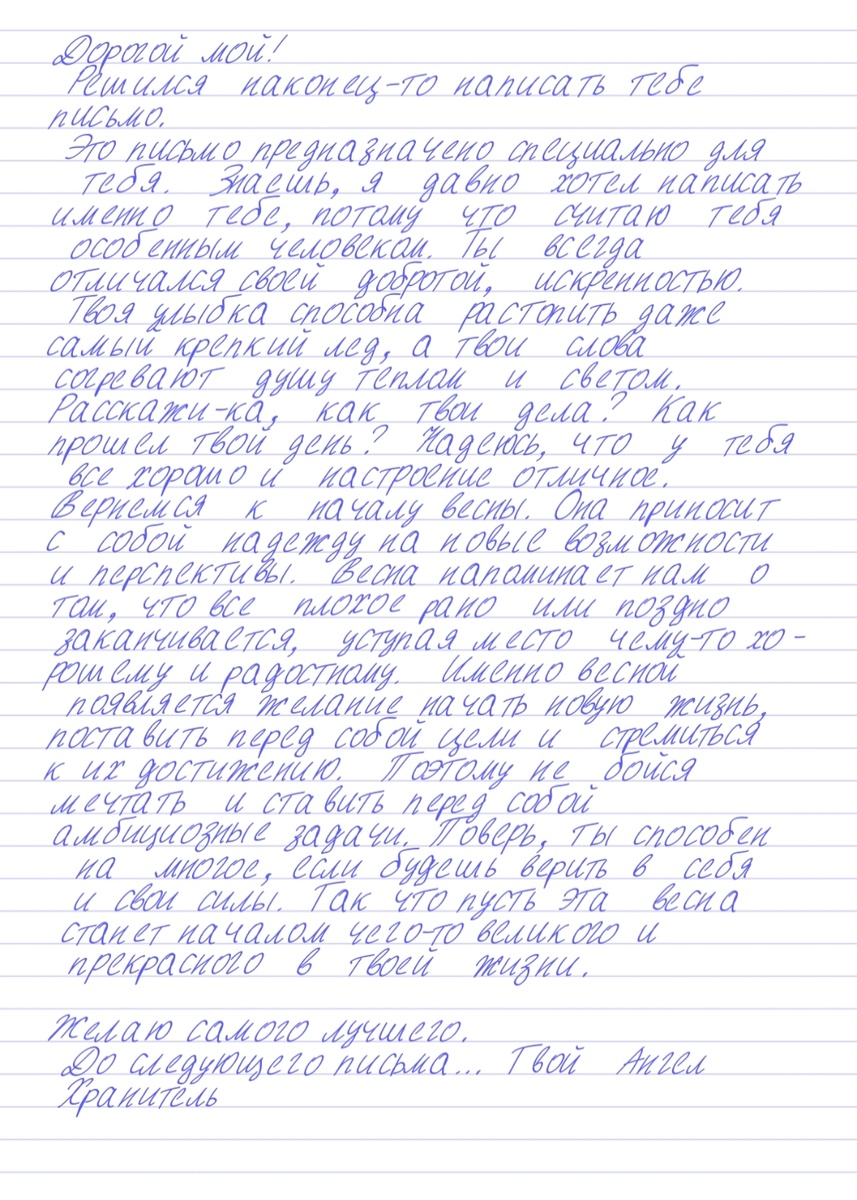 Дорогой мой!
Решился наконец-то написать тебе
письмо.
Это письмо предназначено специально для
тебя. Знаешь, я давно хотел написать
именно тебе, потому что считаю тебя
особенным человеком. Ты всегда
отличался своей добротой, искренностью.
Твоя улыбка способна растопить даже
самый крепкий лед, а твои слова
согревают душу теплом и светом.
Расскажи-ка, как твои дела? Как
прошел твой день? Надеюсь, что у тебя
все хорошо и настроение отличное.
Вернемся к началу весны. Она приносит
с собой надежду на новые возможности
и перспективы. Весна напоминает нам о
том, что все плохое рано или поздно
заканчивается, уступая место чему-то хо-
рошему и радостному. Именно весной
появляется желание начать новую жизнь,
поставить перед собой цели и стремиться
к их достижению. Поэтому не бойся
мечтать и ставить перед собой
амбициозные задачи. Поверь, ты способен
на многое, если будешь верить в себя
и свои силы. Так что пусть эта весна
станет началом чего-то великого и
прекрасного в твоей жизни.
Желаю самого лучшего.
До следующего письма... Твой Ангел
Хранитель